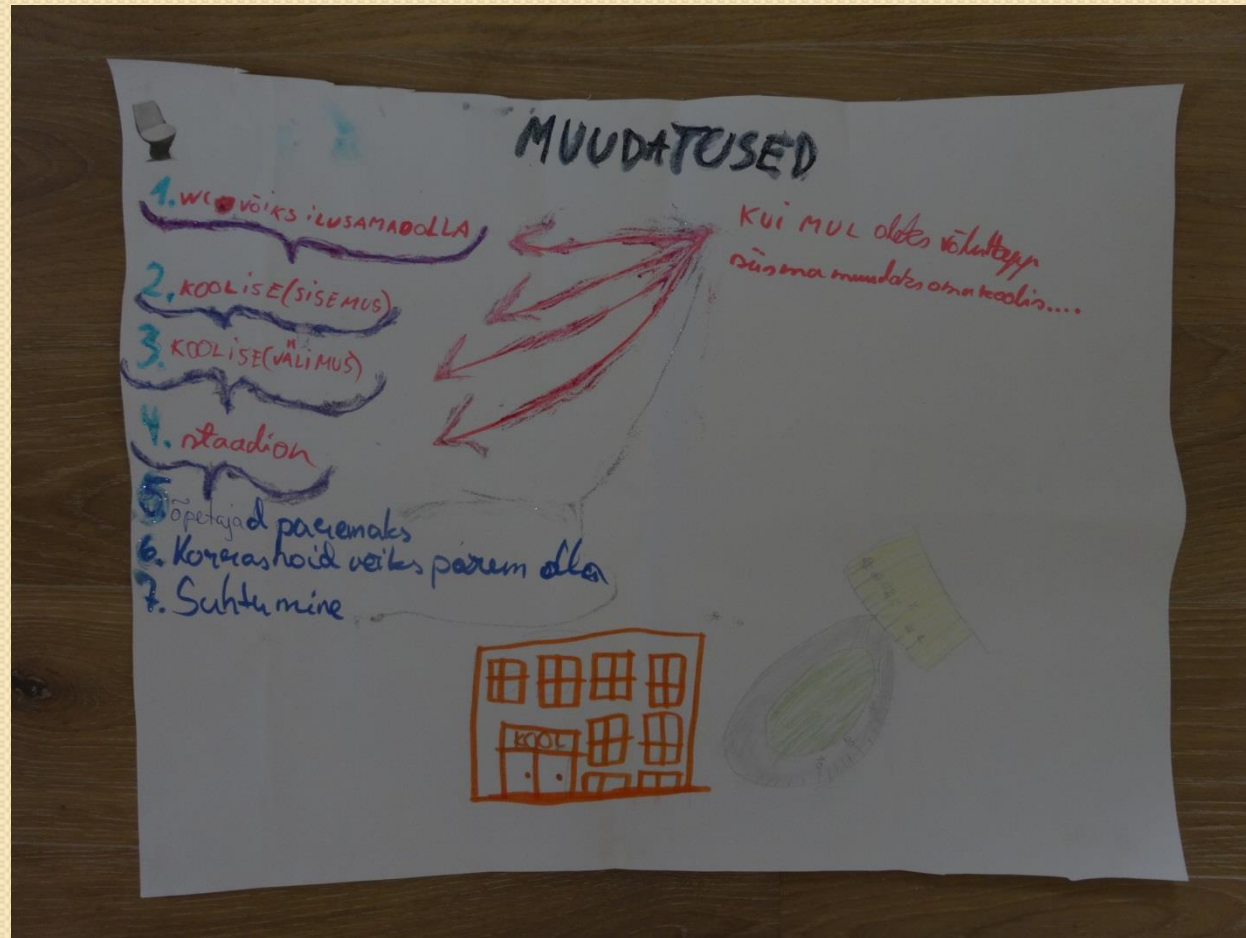 MUUDATUSED
1. WC võiks iLUSAMAD OLLA
2. KOOLiSE (SiSEMUS)
3. KOOLiSE (VÄLiMUS)
4. staadion
5 õpetajad paremaks
6. Korrashoid võiks parem olla
7. Suhtumine
KUi MUL oleks võlukepp
siis ma muudaks oma koolis....
KOOL